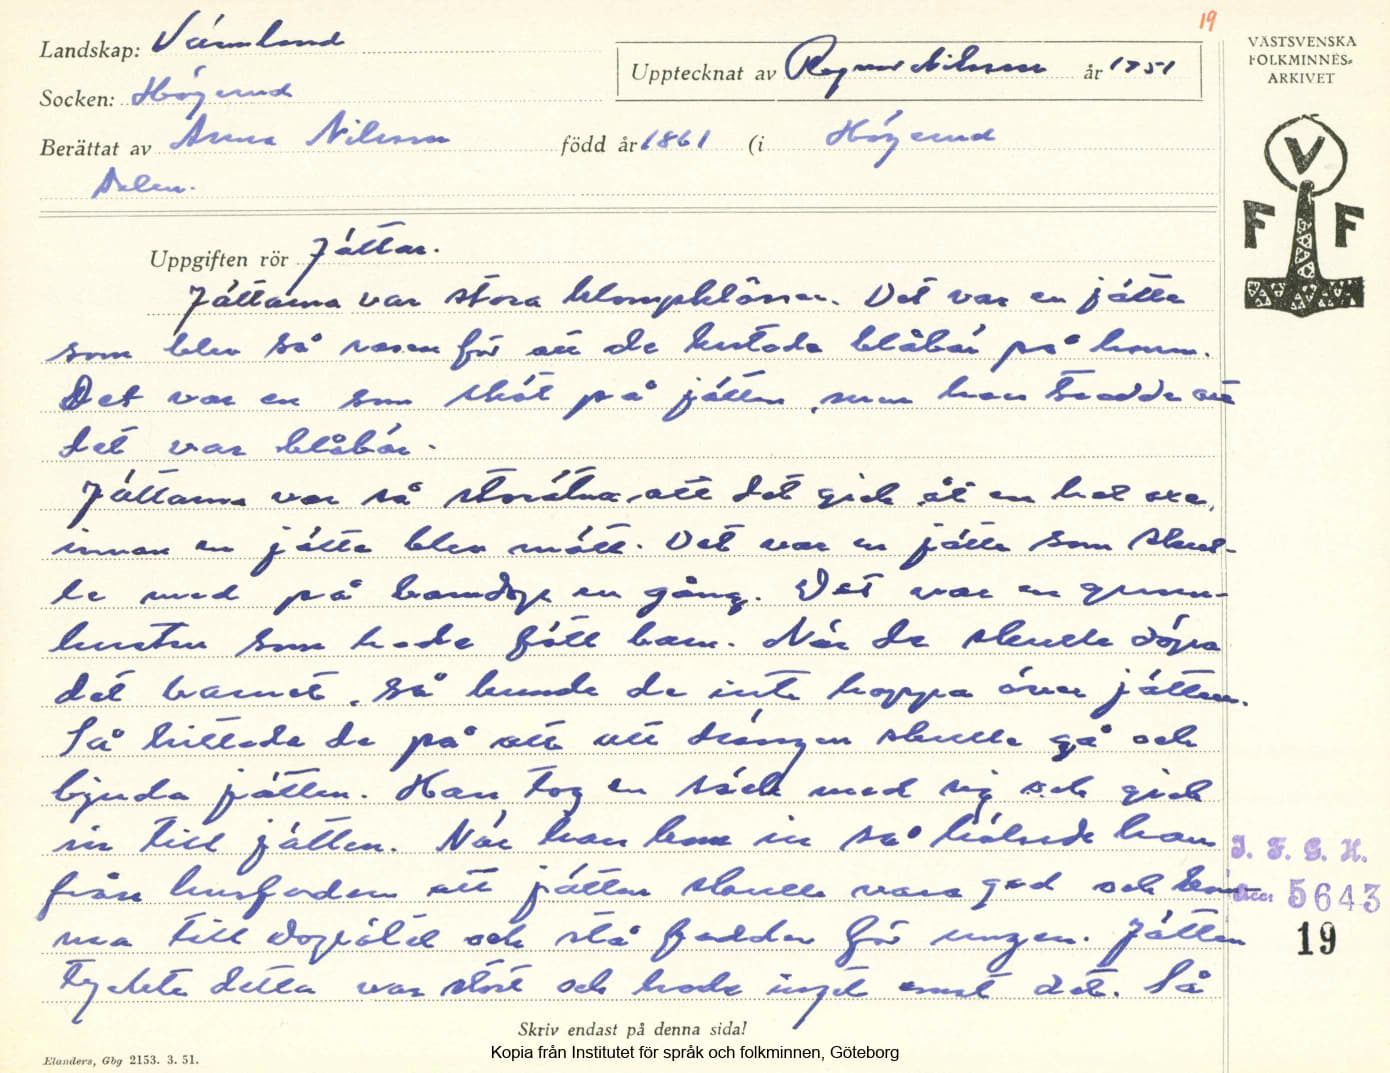 19
Landskap: Värmland
Upptecknat av Ragnar Nilsson år 1951
Socken: Högerud
Berättat av Anna Nilsson född år 1861 (i Högerud
Dalen.
VÄSTSVENSKA
FOLKMINNES-
ARKIVET
V
F F
Uppgiften rör Jättar.
Jättarna var stora klumpklösser. Det var en jätte
som blev så vasen för att de kastade blåbär på honom.
Det var en som sköt på jätten, men han trodde att
det var blåbär.
Jättarna var så storätna, att det gick åt en hel oxe,
innan en jätte blev mätt. Det var en jätte som skul-
le med på barndop en gång. Det var en grann-
hustru som hade fått barn. När de skulle döpa
det barnet, så kunde de inte hoppa över jätten.
Så hittade de på att att drängen skulle gå och
bjuda jätten. Han tog en säck med sig och gick
in till jätten. När han kom in så hälsade han
från husfadern att jätten skulle vara god och kom-
ma till dopgåtal och stå fadder för ungen. Jätten
tyckte detta var stort och hade inget emot det. Så
I. F. G. H.
Acc. 5643
19
Skriv endast på denna sida!
Kopia från Institutet för språk och folkminnen, Göteborg
Elanders, Gbg 2153. 3. 51.